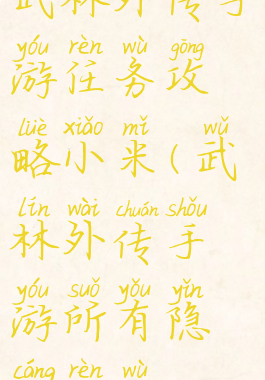 武林外传手
yóu rèn wù gōng
游任务攻
lüè xiǎo mǐ wǔ
略小米(武
lín wài chuán shǒu
林外传手
yóu suǒ yǒu yǐn
游所有隐
cáng rèn wù